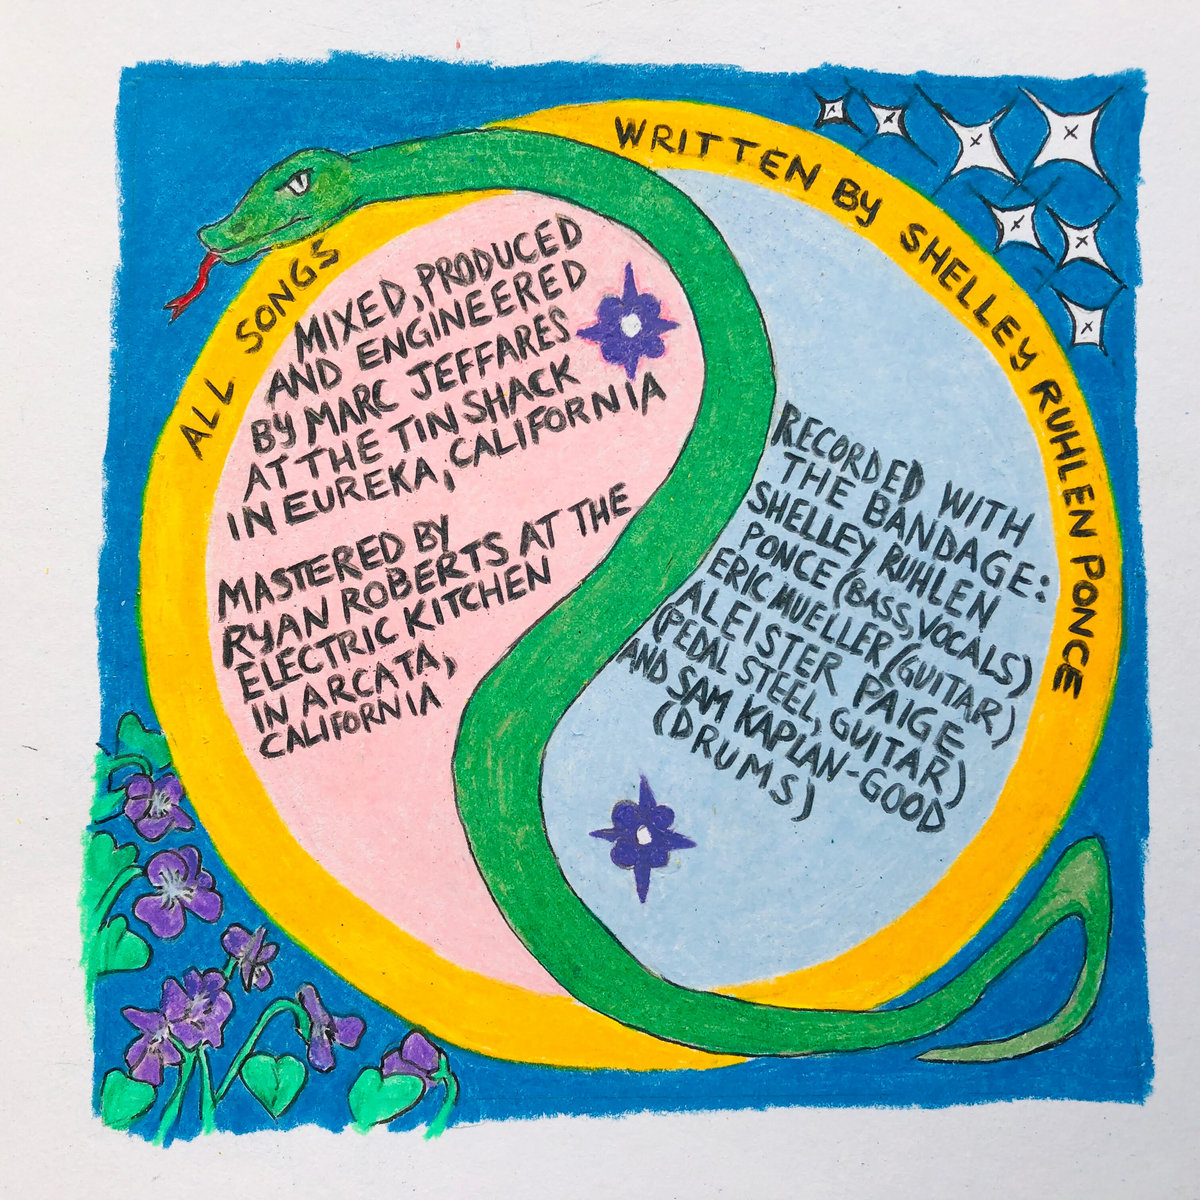 ALL SONGS WRITTEN BY SHELLEY RUHLEN PONCE
MIXED, PRODUCED
AND ENGINEERED
BY MARC JEFFARES
AT THE TIN SHACK
IN EUREKA, CALIFORNIA
MASTERED BY
RYAN ROBERTS AT THE
ELECTRIC KITCHEN
IN ARCATA,
CALIFORNIA
RECORDED WITH
THE BANDAGE:
SHELLEY RUHLEN
PONCE (BASS, VOCALS)
ERIC MUELLER (GUITAR)
ALEISTER PAIGE
(PEDAL STEEL, GUITAR)
AND SAM KAPLAN-GOOD
(DRUMS)